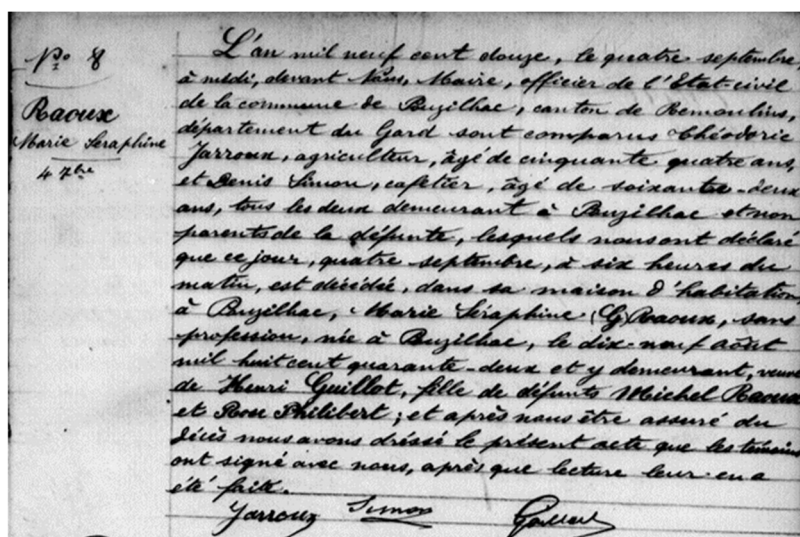 N° 8
Raoux
Marie Seraphine
4 7bre
L'an mil neuf cent douze, le quatre septembre,
à midi, devant Nous, Maire, officier de l'Etat-civil
de la commune de Buzilhac, canton de Remoulins,
département du Gard sont comparus Théodoric
Jarroux, agriculteur, âgé de cinquante quatre ans,
et Denis Simon, cafetier, âgé de soixante-deux
ans, tous les deux demeurant à Buzilhac et non
parents de la défunte, lesquels nous ont déclaré
que ce jour, quatre septembre, à six heures du
matin, est décédée, dans sa maison d'habitation
à Buzilhac, Marie Séraphine (G) Raoux, sans
profession, née à Buzilhac, le dix-neuf août
mil huit cent quarante-deux et y demeurant, veuve
de Henri Guillot, fille de défunts Michel Raoux
et Rose Philibert; et après nous être assuré du
décès nous avons dréssé le présent acte que les témoins
ont signé avec nous, après que lecture leur en a
été faite.
Jarroux Simon